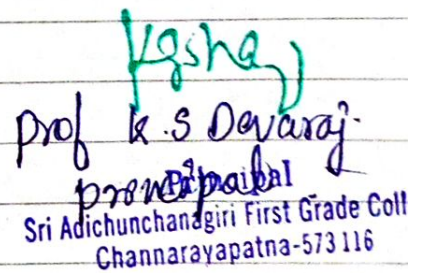 Prof K.S Devaraj.
Principal
Sri Adichunchanagiri First Grade Coll
Channarayapatna-573 116